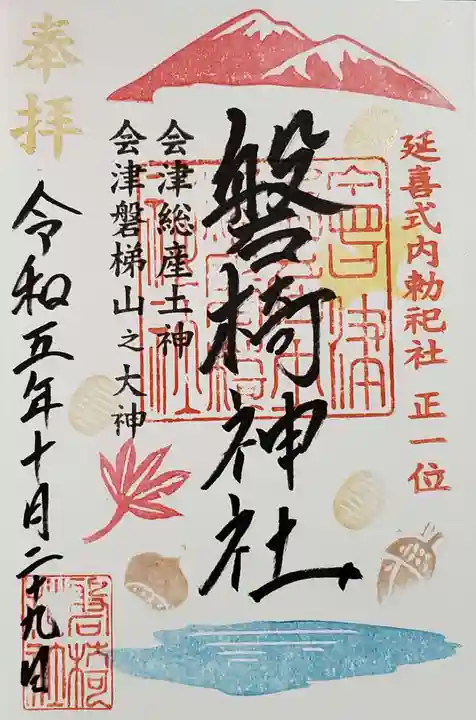 延喜式内勅祀社 正一位
磐椅神社
会津総産土神
会津磐梯山之大神
奉拝
令和五年十月二十九日
磐椅神社